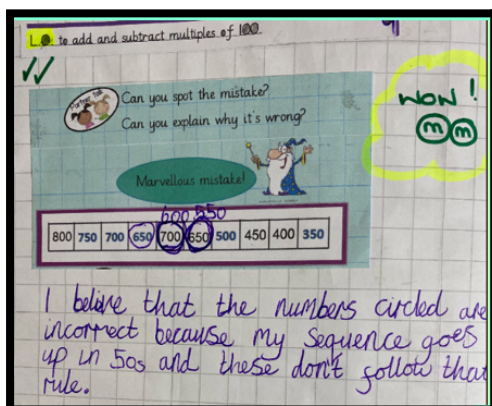 L.O. to add and subtract multiples of 100.
Partner Talk
Can you spot the mistake?
Can you explain why it's wrong?
WOW!
m m
Marvellous mistake!
600 550
800 750 700 650 700 650 500 450 400 350
I belive that the numbers circled are
incorrect because my sequence goes
up in 50s and these don't follow that
rule.